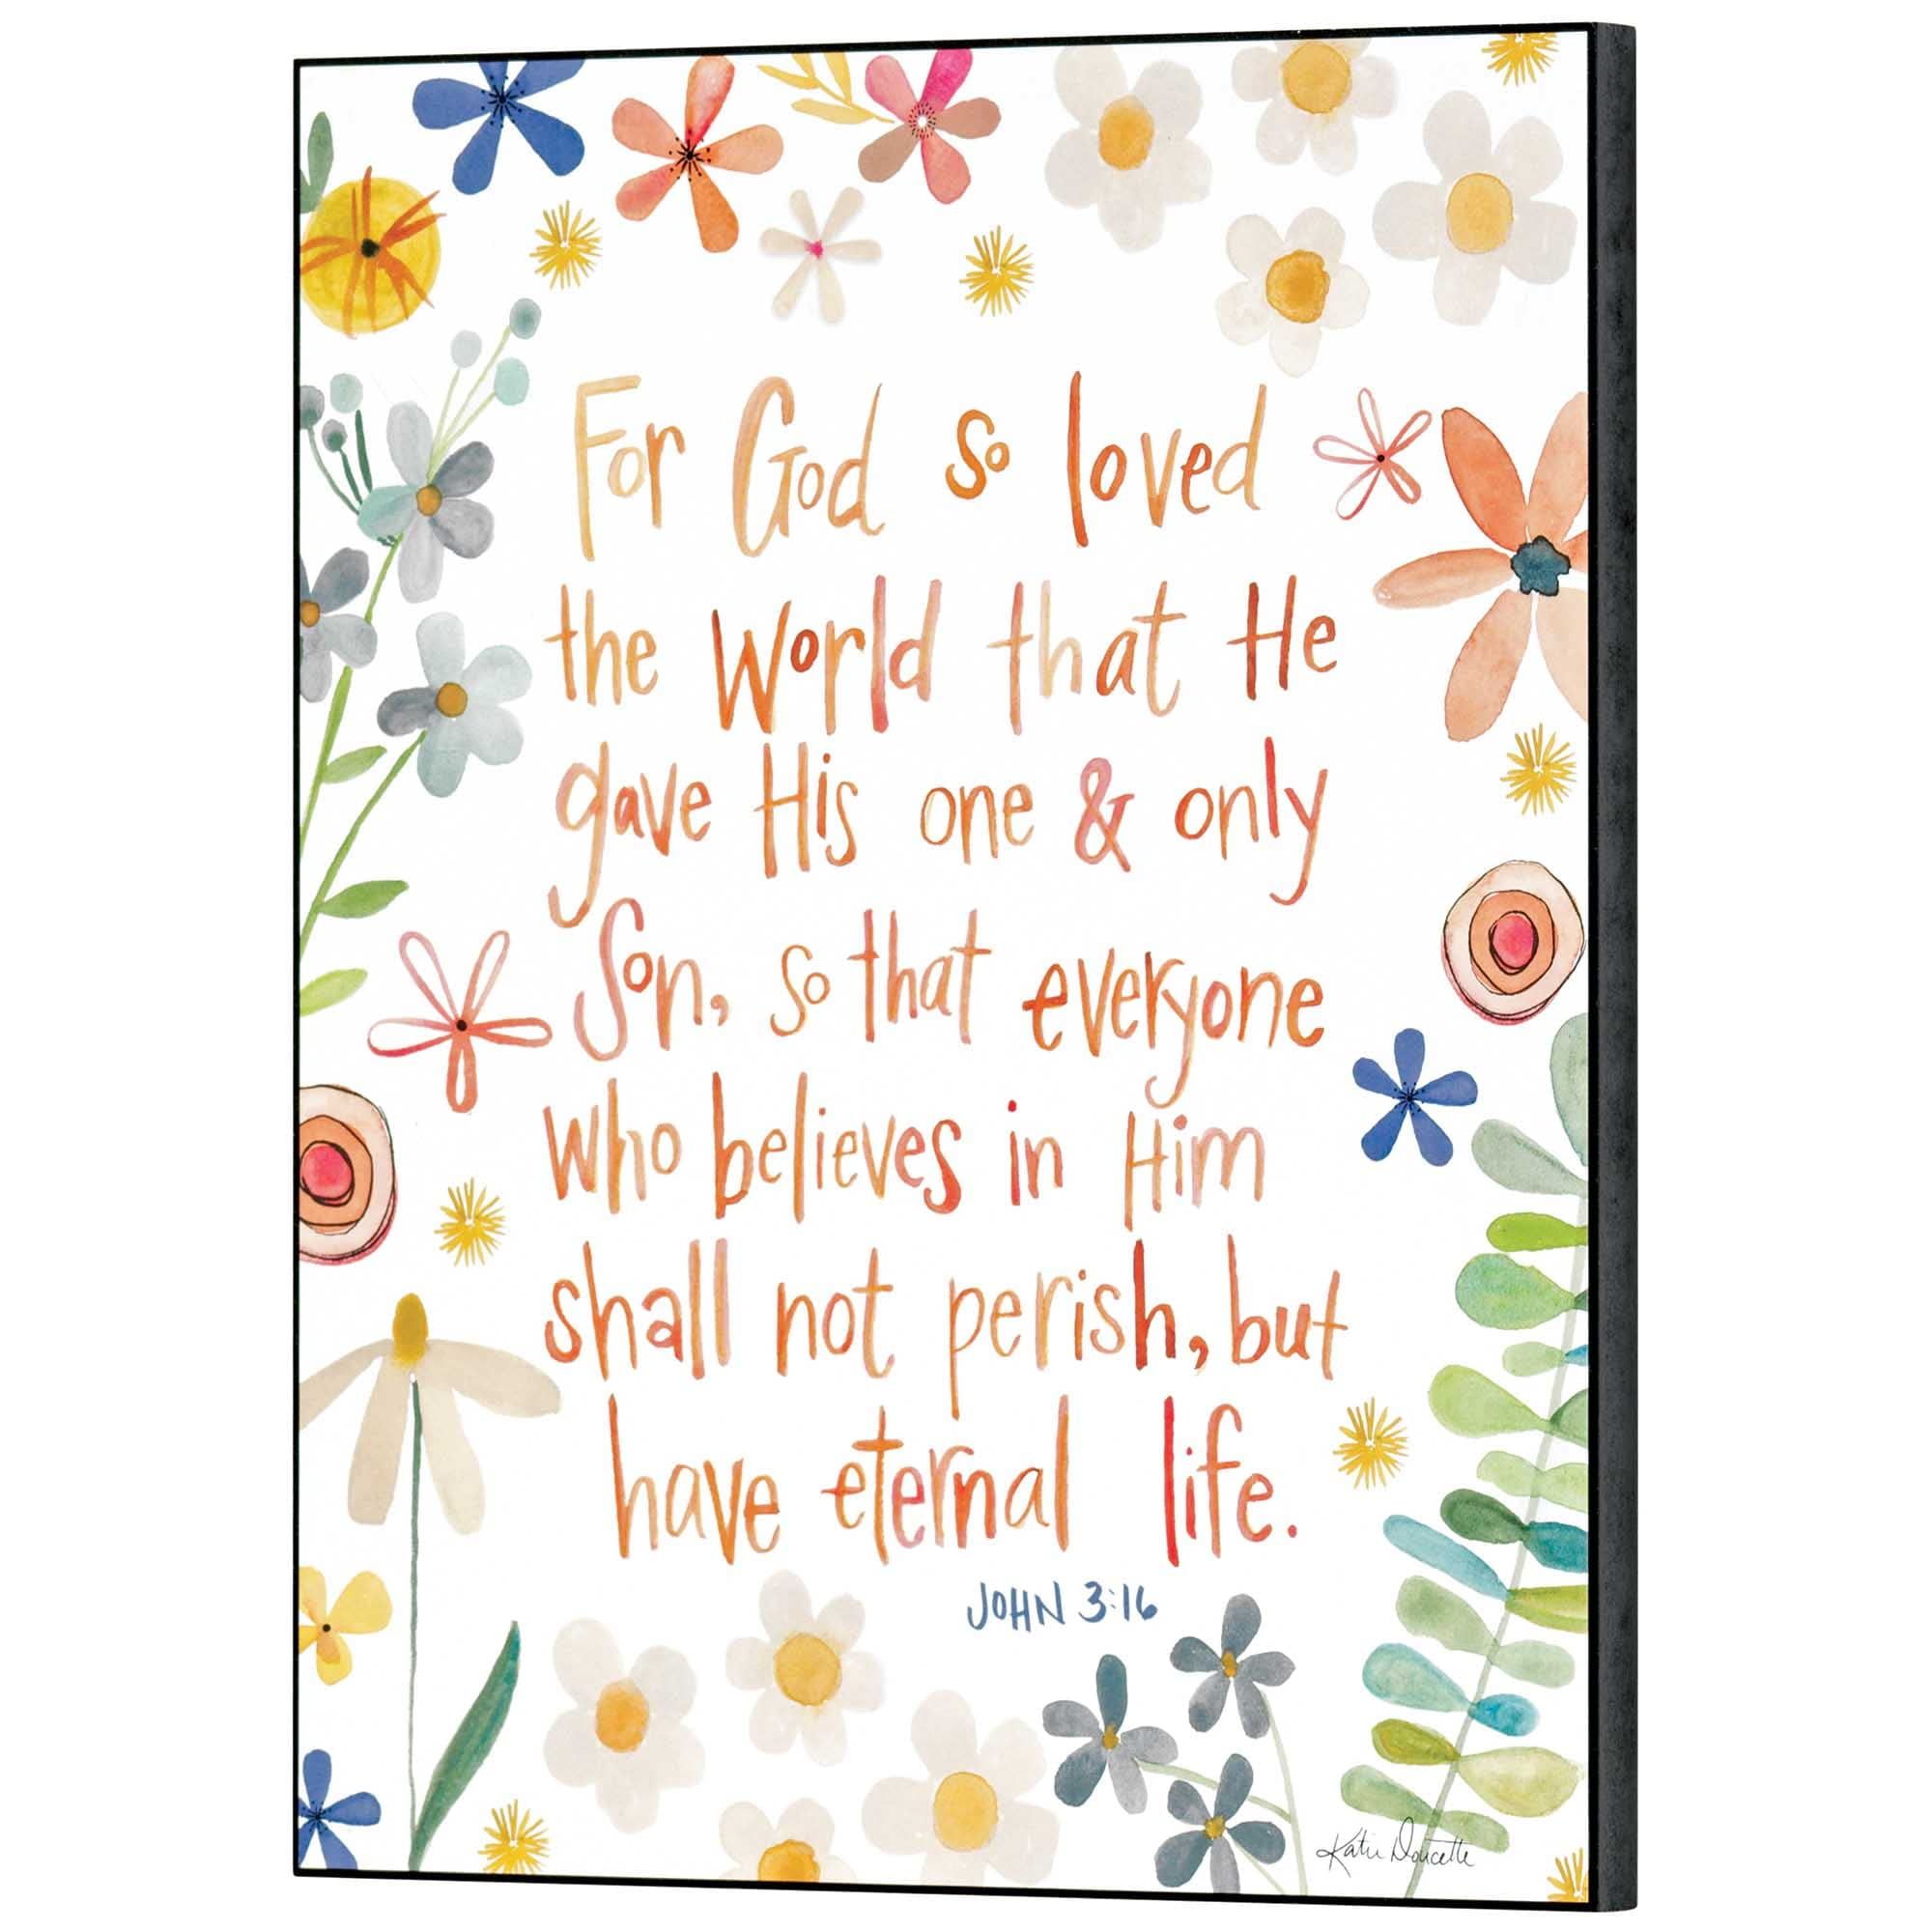 For God so loved
the world that He
gave His one & only
Son, so that everyone
who believes in Him
shall not perish, but
have eternal life.
JOHN 3:16
Katie Doucette